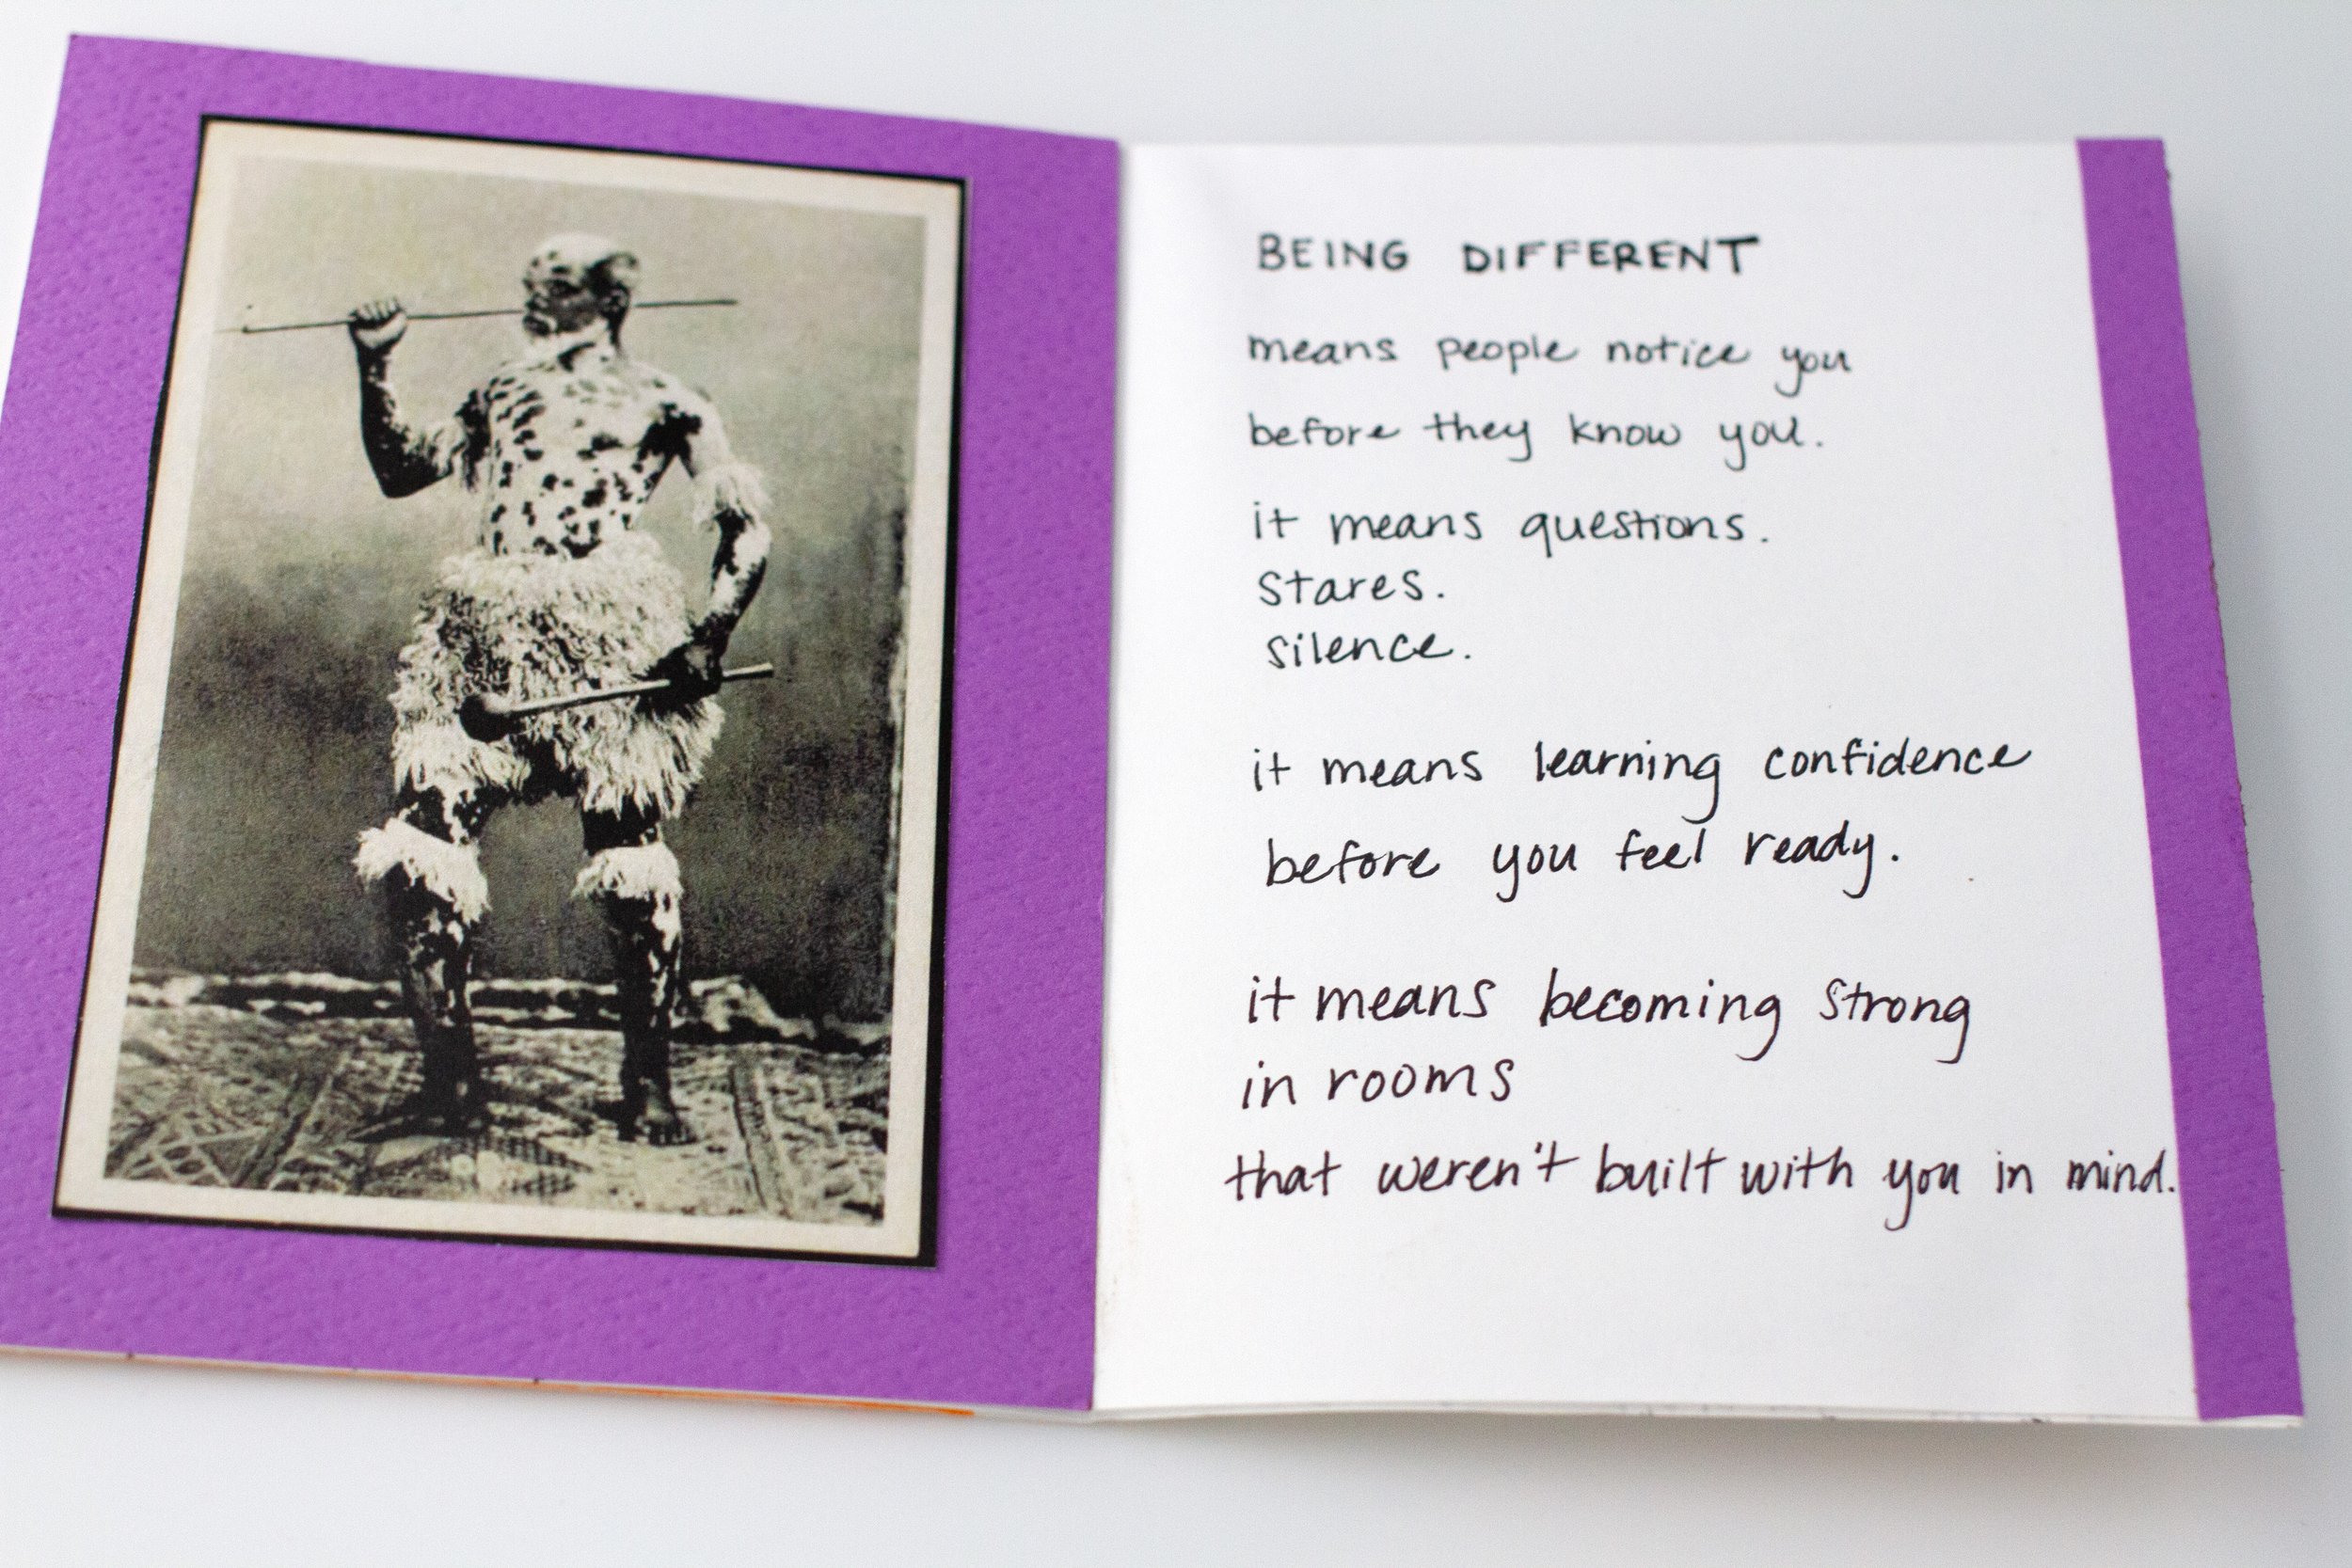 BEING DIFFERENT
means people notice you
before they know you.
it means questions.
stares.
silence.
it means learning confidence
before you feel ready.
it means becoming strong
in rooms
that weren't built with you in mind.